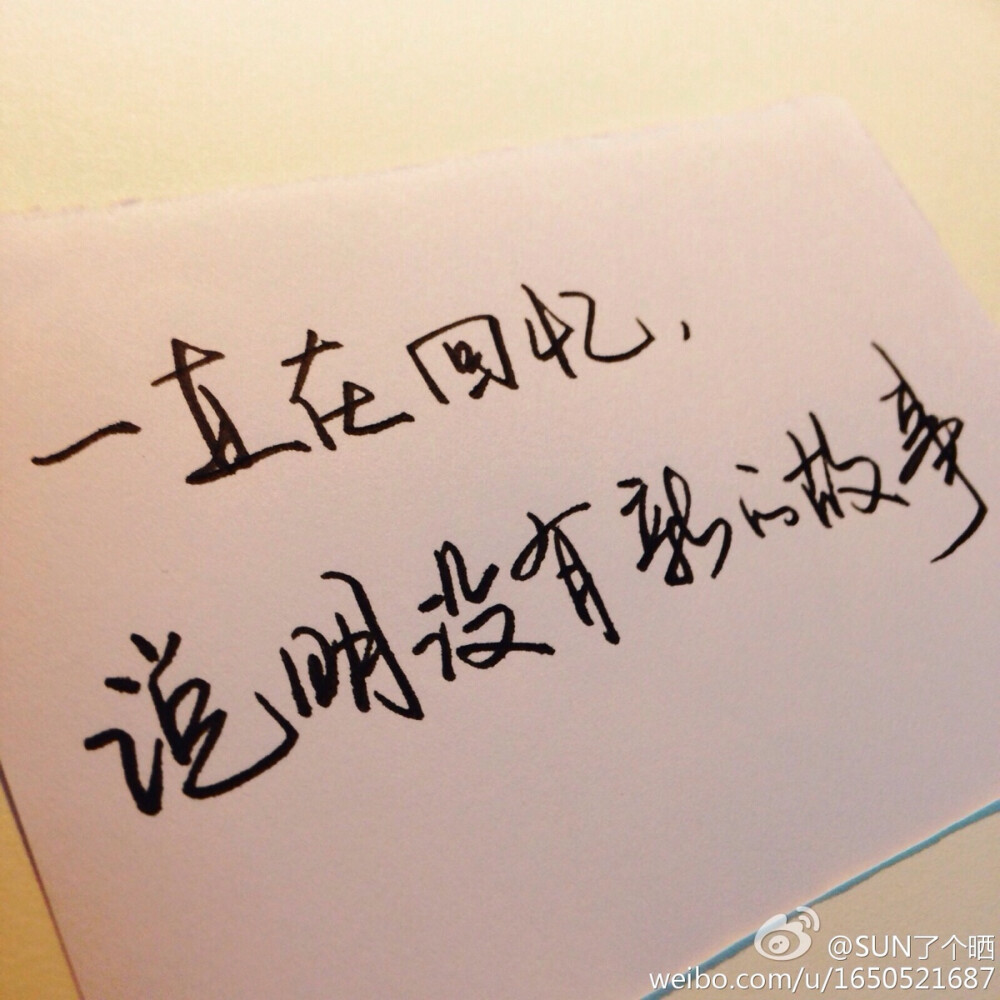 一直在回忆，
说明没有新的故事
@SUN了个晒
weibo.com/u/1650521687